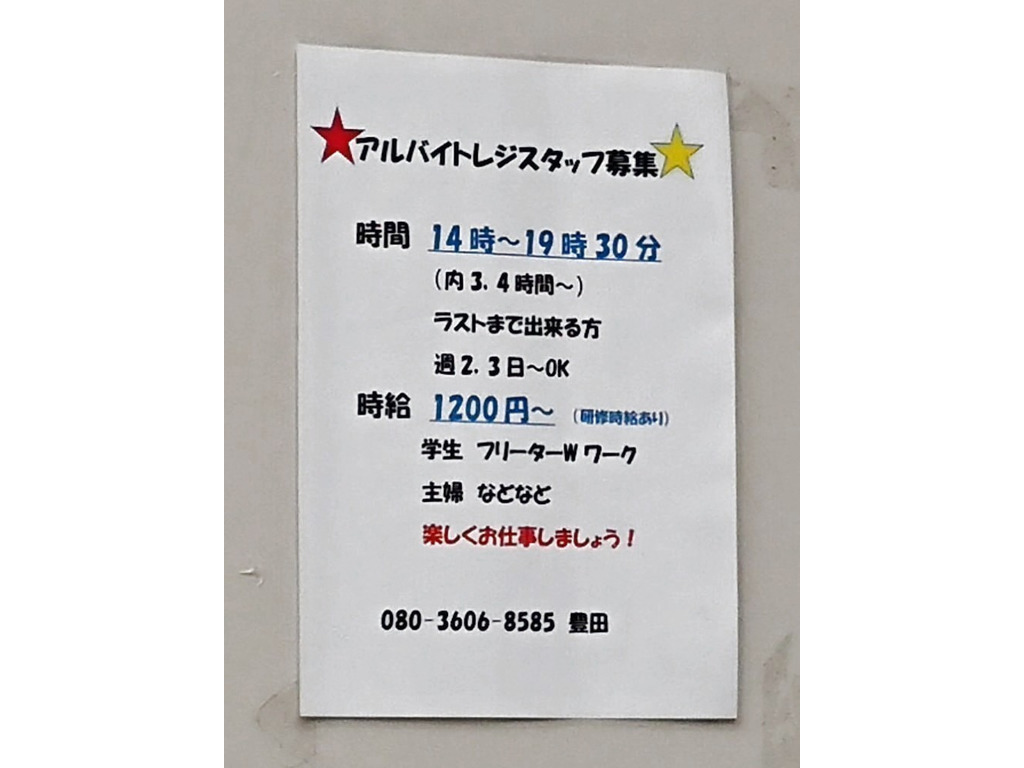 アルバイトレジスタッフ募集
時間 14時～19時30分
（内3．4時間～）
ラストまで出来る方
週2．3日～OK
時給 1200円～ （研修時給あり）
学生 フリーターWワーク
主婦 などなど
楽しくお仕事しましょう！
080-3606-8585 豊田